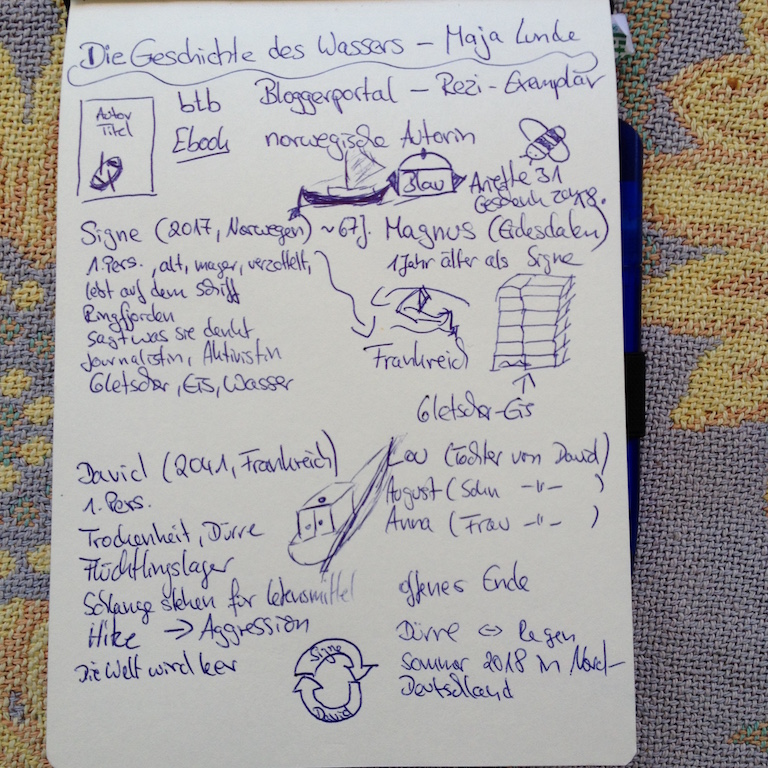 Die Geschichte des Wassers – Maja Lunde
Autor
Titel
btb
Ebook
Bloggerportal – Rezi-Exemplar
norwegische Autorin
Blau
Anette 31
Geschenk 2018.
Signe (2017, Norwegen) ~67J.
1.Pers., alt, mager, verzottelt,
lebt auf dem Schiff
Ringfjorden
sagt was sie denkt
Journalistin, Aktivistin
Gletscher, Eis, Wasser
Magnus (Eidesdalen)
1 Jahr älter als Signe
Frankreich
Gletscher-Eis
David (2041, Frankreich)
1.Pers.
Trockenheit, Dürre
Flüchtlingslager
Schlange stehen für Lebensmittel
Hitze → Aggression
Die Welt wird leer
Lou (Tochter von David)
August (Sohn –"– )
Anna (Frau –"– )
offenes Ende
Dürre ⇔ Regen
Sommer 2018 in Nord-
Deutschland
Signe
David